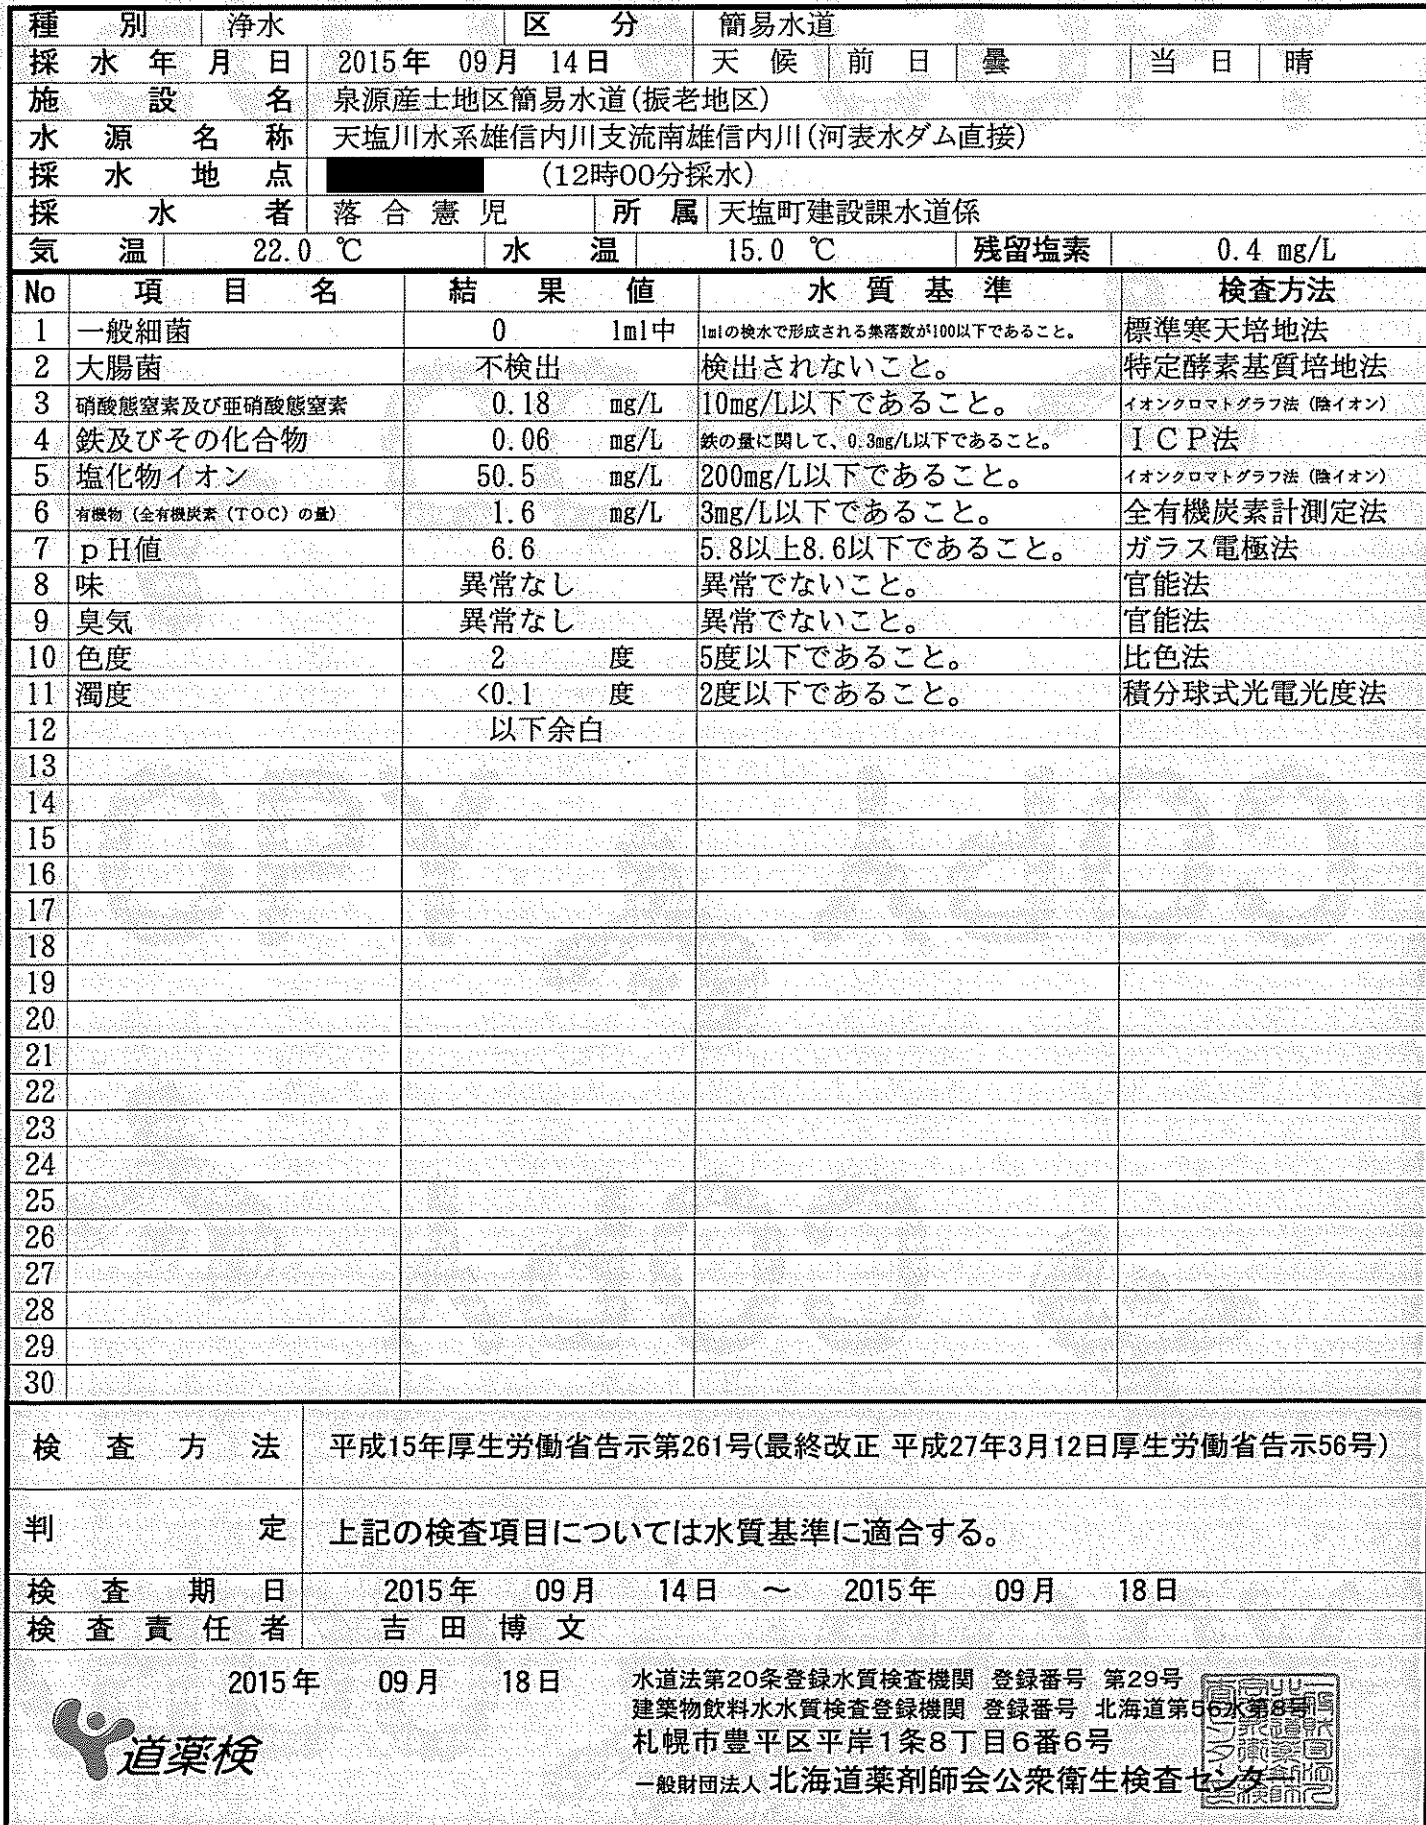 種別 浄水 区分 簡易水道
採水年月日 2015年 09月 14日 天候 前日 曇 当日 晴
施設名 泉源産士地区簡易水道(振老地区)
水源名称 天塩川水系雄信内川支流南雄信内川(河表水ダム直接)
採水地点 (12時00分採水)
採水者 落合憲児 所属 天塩町建設課水道係
気温 22.0 ℃ 水温 15.0 ℃ 残留塩素 0.4 mg/L
No 項目名 結果値 水質基準 検査方法
1 一般細菌 0 1ml中 1mlの検水で形成される集落数が100以下であること。 標準寒天培地法
2 大腸菌 不検出 検出されないこと。 特定酵素基質培地法
3 硝酸態窒素及び亜硝酸態窒素 0.18 mg/L 10mg/L以下であること。 イオンクロマトグラフ法(陰イオン)
4 鉄及びその化合物 0.06 mg/L 鉄の量に関して、0.3mg/L以下であること。 ICP法
5 塩化物イオン 50.5 mg/L 200mg/L以下であること。 イオンクロマトグラフ法(陰イオン)
6 有機物(全有機炭素(TOC)の量) 1.6 mg/L 3mg/L以下であること。 全有機炭素計測定法
7 pH値 6.6 5.8以上8.6以下であること。 ガラス電極法
8 味 異常なし 異常でないこと。 官能法
9 臭気 異常なし 異常でないこと。 官能法
10 色度 2 度 5度以下であること。 比色法
11 濁度 <0.1 度 2度以下であること。 積分球式光電光度法
12 以下余白
13
14
15
16
17
18
19
20
21
22
23
24
25
26
27
28
29
30
検査方法 平成15年厚生労働省告示第261号(最終改正 平成27年3月12日厚生労働省告示56号)
判定 上記の検査項目については水質基準に適合する。
検査期日 2015年 09月 14日 ～ 2015年 09月 18日
検査責任者 吉田博文
2015年 09月 18日
水道法第20条登録水質検査機関 登録番号 第29号
建築物飲料水水質検査登録機関 登録番号 北海道第56水第8号
札幌市豊平区平岸1条8丁目6番6号
一般財団法人 北海道薬剤師会公衆衛生検査センター
道薬検